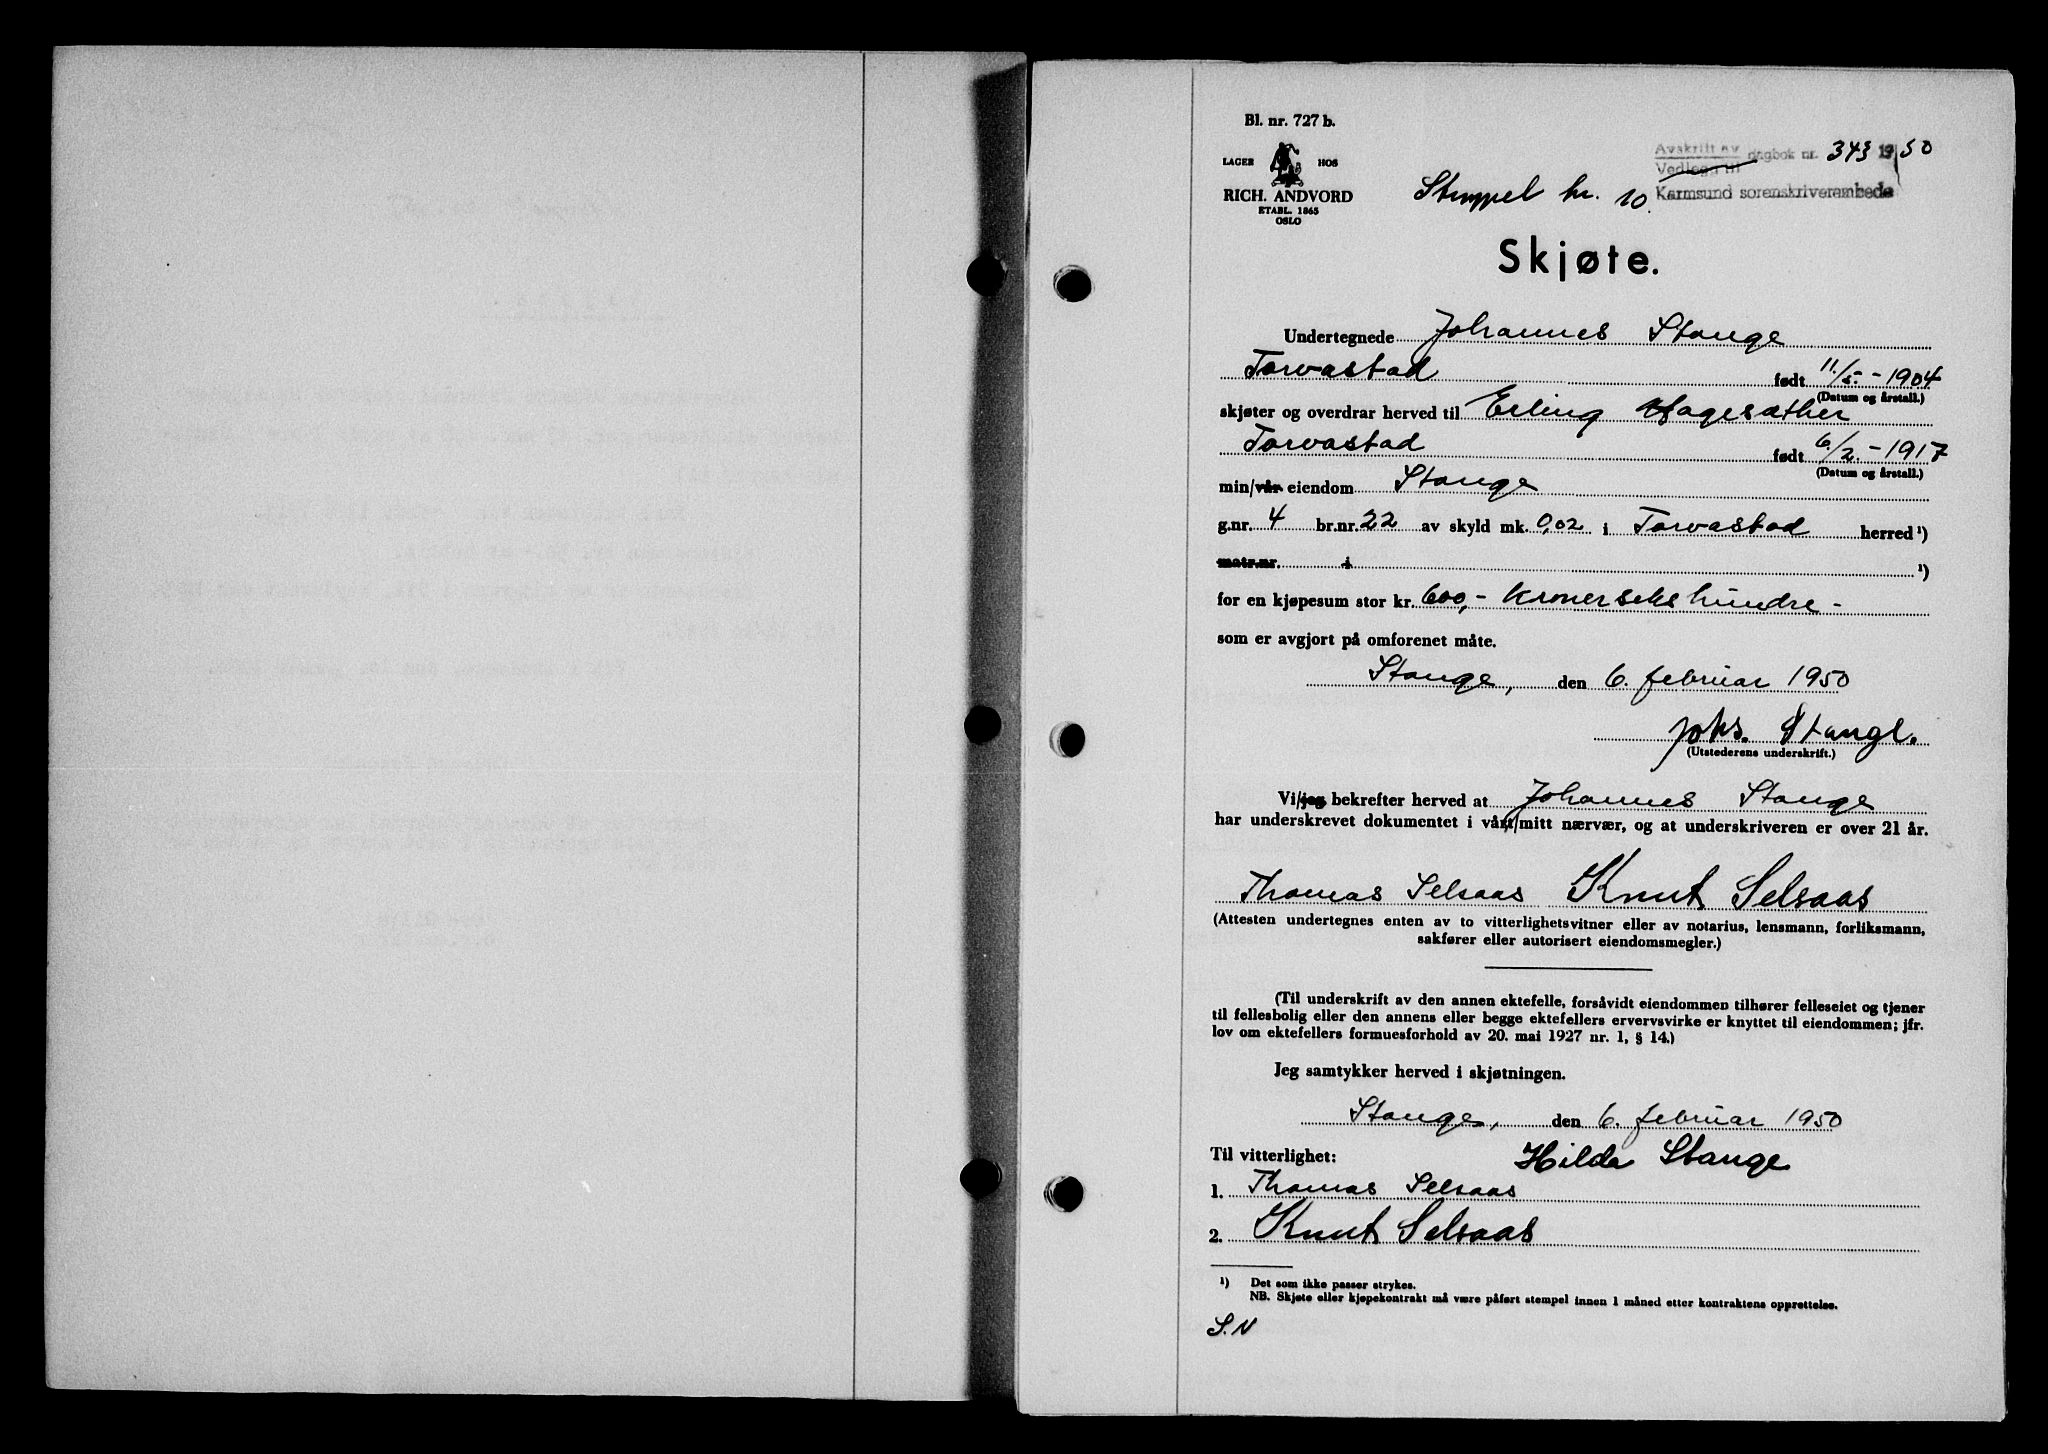 Bl. nr. 727 b.
LAGER HOS
RICH. ANDVORD
ETABL. 1865
OSLO
Stempel kr. 10.
Avskrift av
Vedlegg til dagbok nr. 343 19/50
Karmsund sorenskriverembede
Skjøte.
Undertegnede Johannes Stange
Torvastad født 11/5.-1904
(Datum og årstall.)
skjøter og overdrar herved til Erling Hagesæther
Torvastad født 6/2.-1917
(Datum og årstall.)
min/vår eiendom Stange
g.nr. 4 br.nr. 22 av skyld mk. 0,02 i Torvastad herred ¹)
matr.nr. i ¹)
for en kjøpesum stor kr. 600,- kroner seks hundre -
som er avgjort på omforenet måte.
Stange, den 6. februar 1950
Johs. Stange.
(Utstederens underskrift.)
Vi/jeg bekrefter herved at Johannes Stange
har underskrevet dokumentet i vårt/mitt nærvær, og at underskriveren er over 21 år.
Thomas Selsaas Knut Selsaas
(Attesten undertegnes enten av to vitterlighetsvitner eller av notarius, lensmann, forliksmann,
sakfører eller autorisert eiendomsmegler.)
(Til underskrift av den annen ektefelle, forsåvidt eiendommen tilhører felleseiet og tjener
til fellesbolig eller den annens eller begge ektefellers ervervsvirke er knyttet til eiendommen; jfr.
lov om ektefellers formuesforhold av 20. mai 1927 nr. 1, § 14.)
Jeg samtykker herved i skjøtningen.
Stange, den 6. februar 1950
Til vitterlighet: Hilda Stange
1. Thomas Selsaas
2. Knut Selsaas
¹) Det som ikke passer strykes.
NB. Skjøte eller kjøpekontrakt må være påført stempel innen 1 måned etter kontraktens opprettelse.
S.N